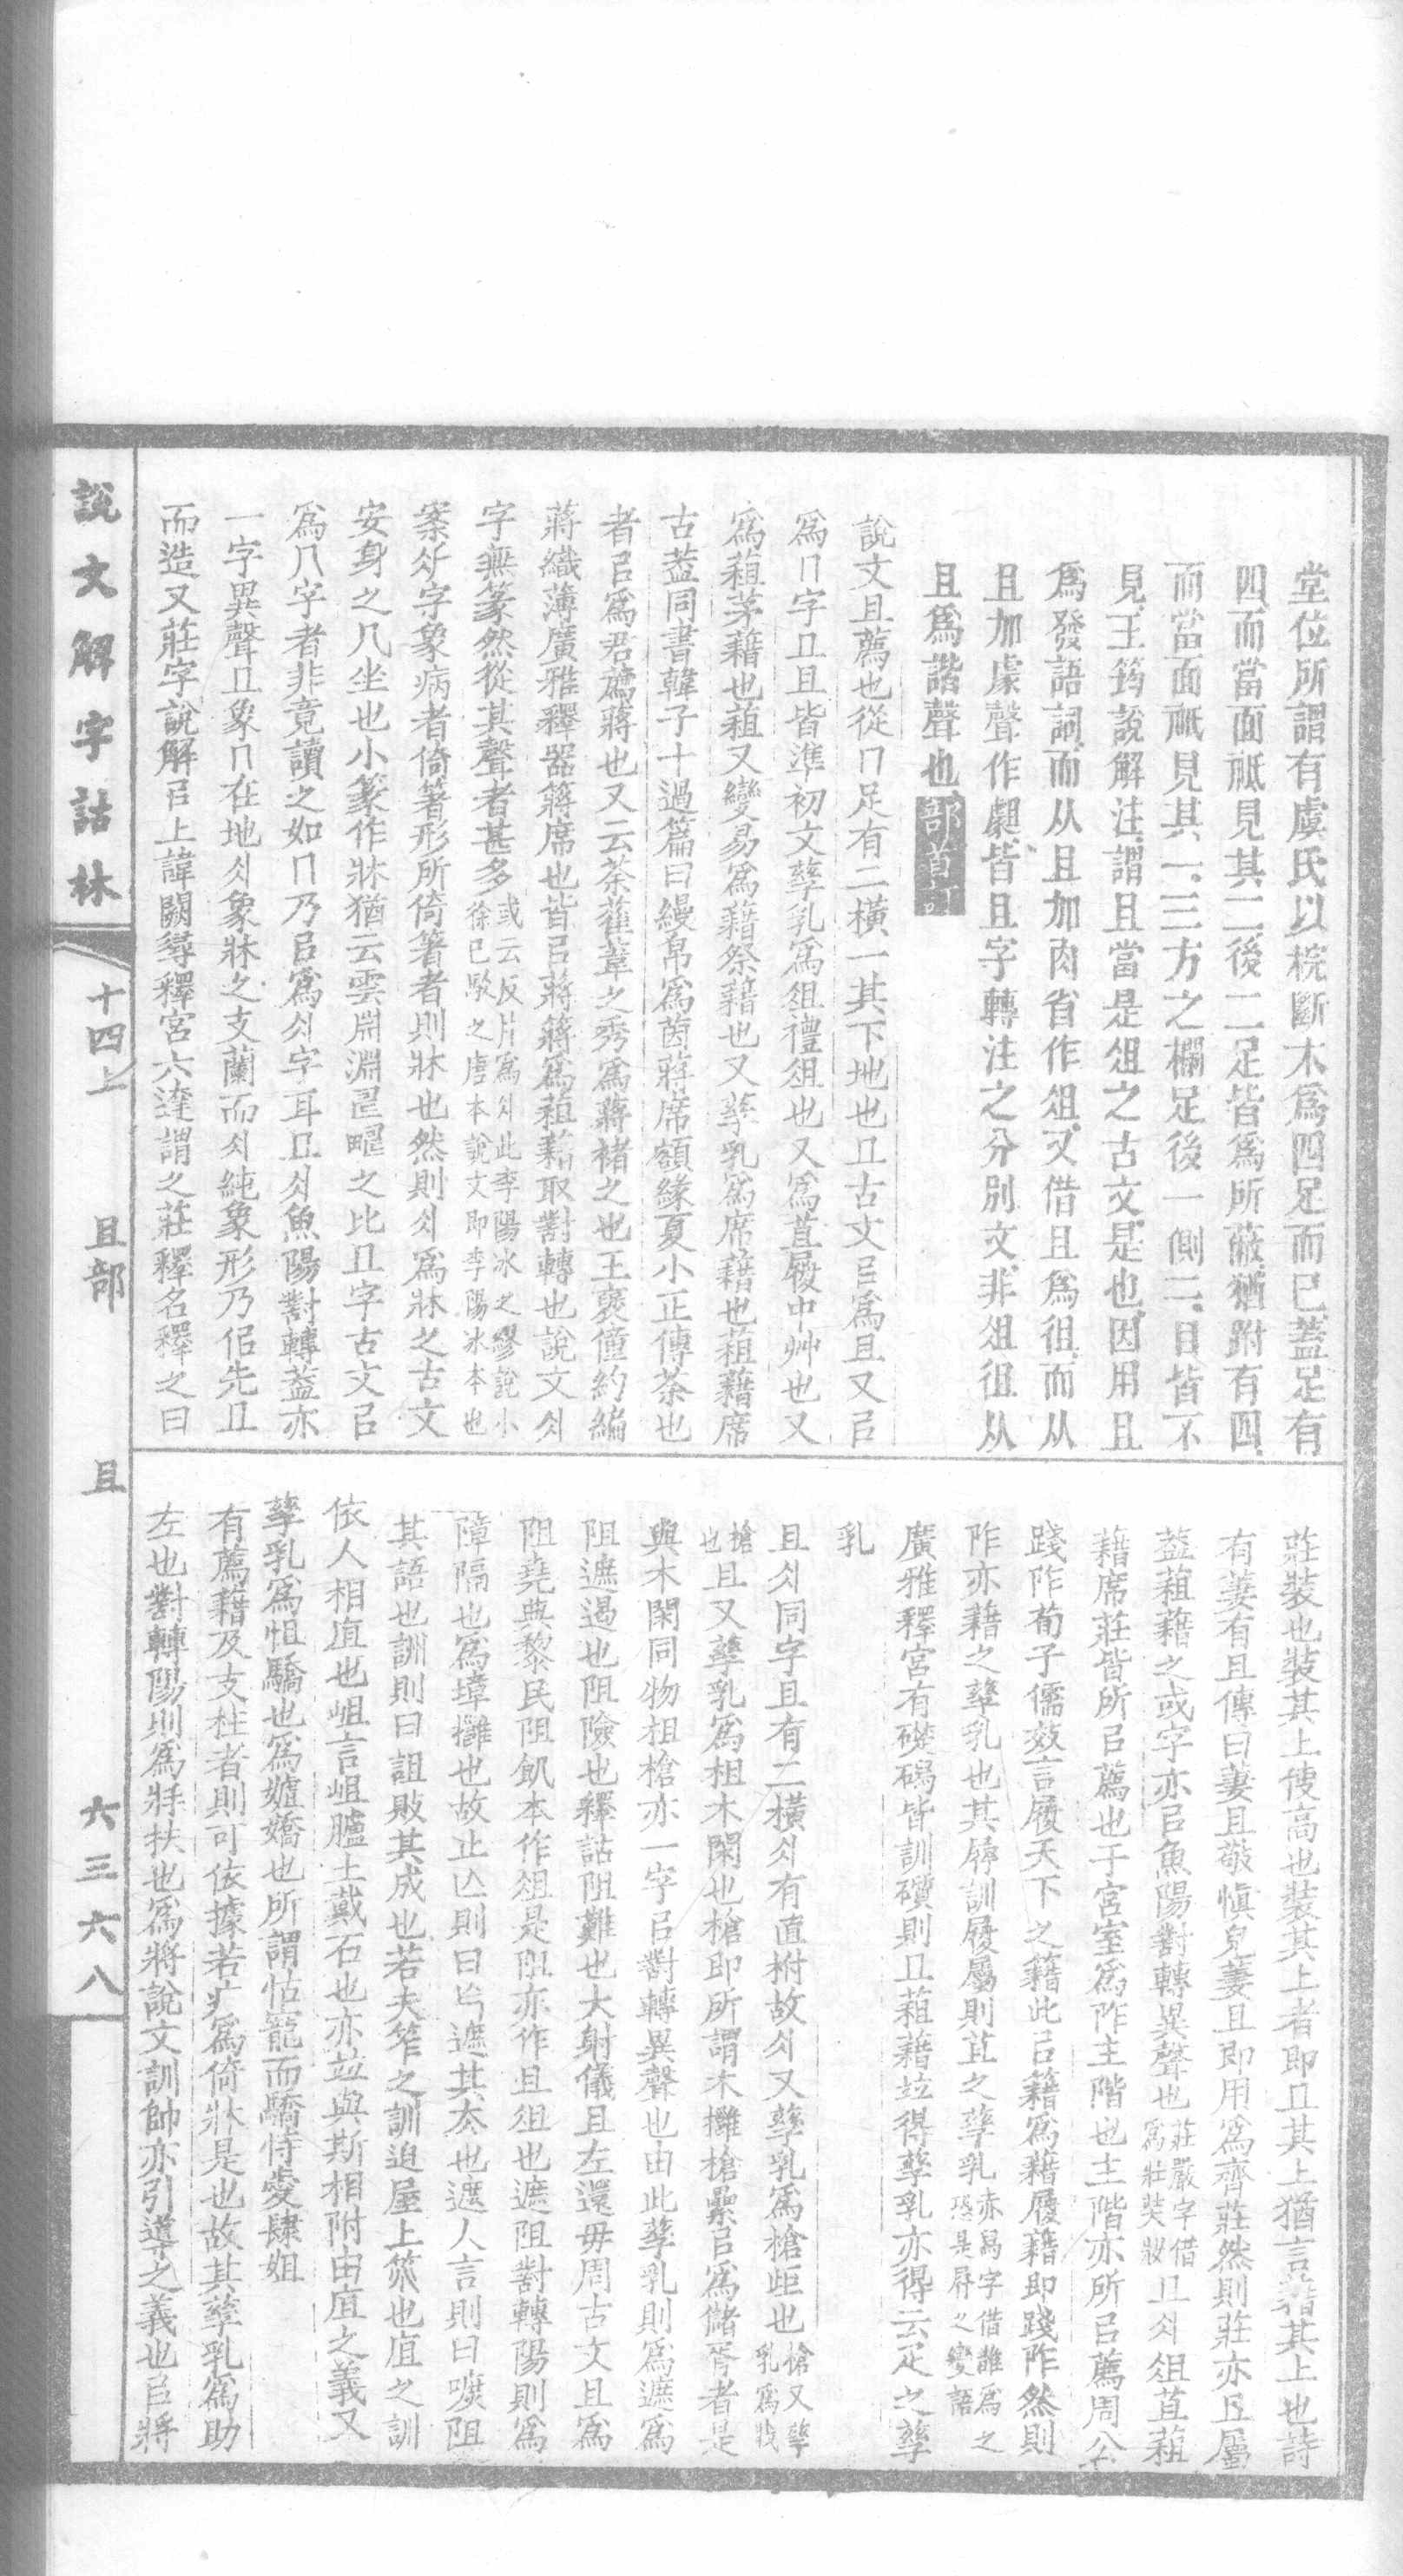 堂位所謂有虞氏以梡斷木爲四足而巳蓋足有
四而當面祗見其二後二足皆爲所蔽猶跗有四
而當面祗見其一三方之欄足後一側二目皆不
見王筠說解注謂且當是俎之古文是也因用且
爲發語詞而从且加肉省作俎又借且爲徂而从
且加䖒聲作䢐皆且字轉注之分別文非俎徂从
且爲諧聲也部首訂
說文且薦也從冂足有二橫一其下地也𠀃古文㠯爲且又㠯
爲冂字𠀃且皆準初文孳乳爲俎禮俎也又爲苴履中艸也又
爲蒩茅藉也蒩又變易爲藉祭藉也又孳乳爲席藉也蒩藉席
古葢同書韓子十過篇曰縵帛爲茵蔣席頟緣夏小正傳荼也
者㠯爲君薦蔣也又云荼雚葦之秀爲蔣褚之也王褒僮約編
蔣織薄廣雅釋器䈂席也皆㠯蔣䈂爲蒩藉取對轉也說文爿
字無篆然從其聲者甚多或云反片爲爿此李陽冰之繆說小
徐已駮之唐本說文即李陽冰本也
案疒字象病者倚箸形所倚箸者則牀也然則爿爲牀之古文
安身之几坐也小篆作牀猶云雲𣶒淵𦣞𩠐之比𠀃字古文㠯
爲几字者非竟讀之如冂乃㠯爲爿字耳𠀃爿魚陽對轉葢亦
一字異聲𠀃象冂在地爿象牀之支蘭而爿純象形乃佀先𠀃
而造又莊字說解㠯上諱闕尋釋宮六達謂之莊釋名釋之曰
莊裝也裝其上使高也裝其上者即𠀃其上猶言藉其上也詩
有萋有且傳曰萋且敬愼皃萋且即用爲齊莊然則莊亦𠀃屬
葢蒩藉之或字亦㠯魚陽對轉異聲也莊嚴字借
爲壯裝妝𠀃爿俎苴蒩
藉席莊皆所㠯薦也于宮室爲阼主階也主階亦所㠯薦周公
踐阼荀子儒效言履天下之籍此㠯籍爲藉履藉即踐阼然則
阼亦藉之孳乳也其㞕訓履屬則苴之孳乳亦舄字借誰爲之
恐是㞕之變語
廣雅釋宮有礎碣皆訓礩則𠀃蒩藉竝得孳乳亦得云疋之孳
乳
且爿同字且有二橫爿有直柎故爿又孳乳爲槍歫也槍又孳
乳爲戕
槍
也且又孳乳爲柤木閑也槍即所謂木䉶槍纍㠯爲儲胥者是
與木閑同物柤槍亦一字㠯對轉異聲也由此孳乳則爲遮爲
阻遮遏也阻險也釋詁阻難也大射儀且左還毋周古文且爲
阻堯典黎民阻飢本作俎是阻亦作且俎也遮阻對轉陽則爲
障隔也爲墇擁也故止亾則曰乍遮其夳也遮人言則曰嘫阻
其語也訓則曰詛敗其成也若夫笮之訓迫屋上筡也㡹之訓
依人相㡹也岨言岨臚土戴石也亦竝與斯相附由㡹之義又
孳乳爲怚驕也爲嫭嬌也所謂怙寵而驕恃愛肆姐
有薦藉及支柱者則可依據若疒爲倚牀是也故其孳乳爲助
左也對轉陽則爲𤕭扶也爲將說文訓帥亦引導之義也㠯將
說文解字詁林
十四上
且部
且
六三六八